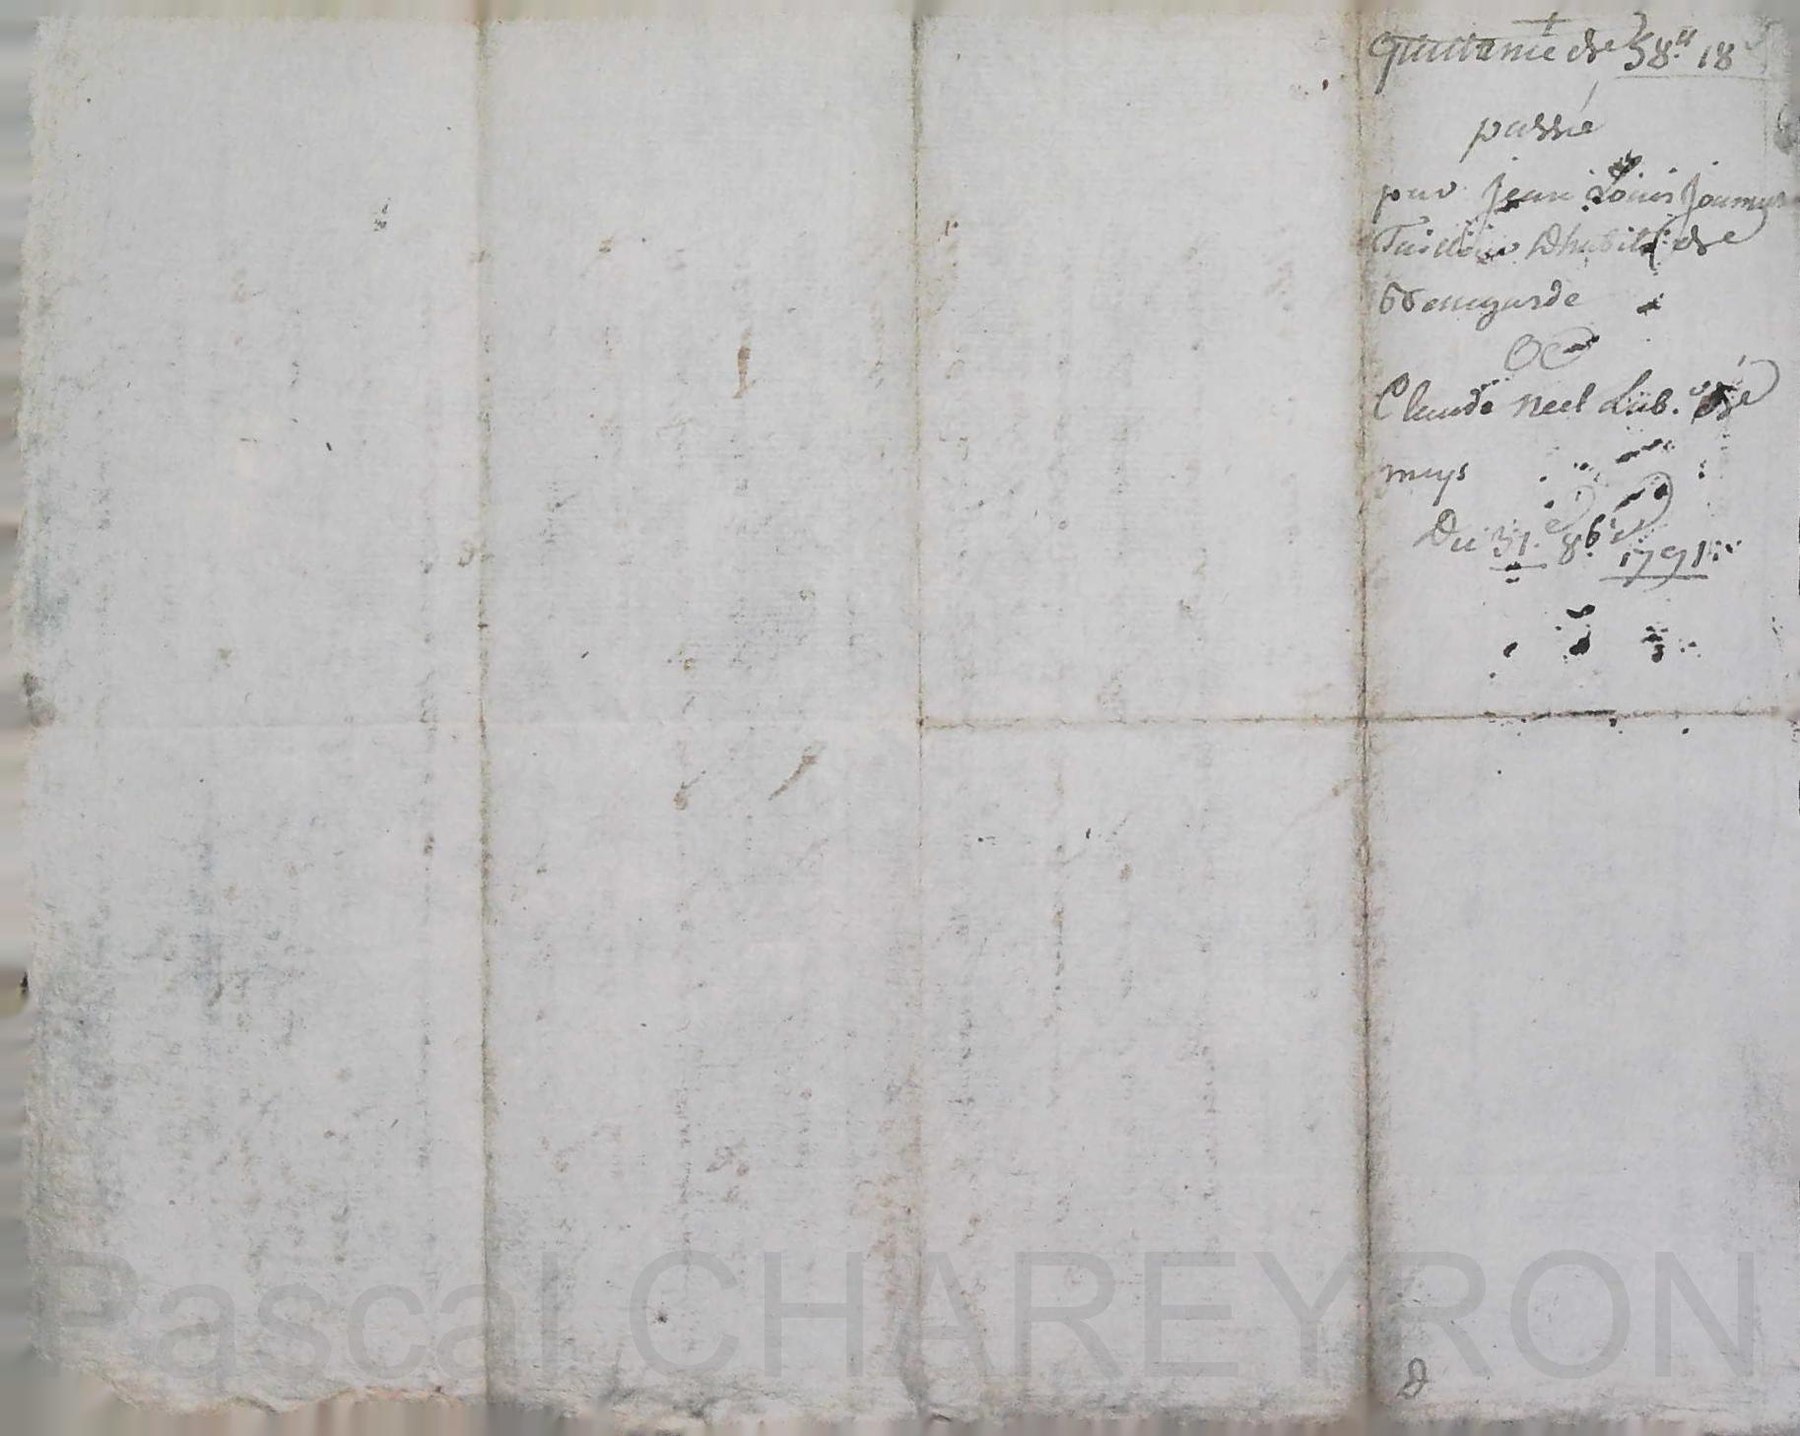 Quittance de 58ᵗᵗ 18ˢ
passée
par Jean Louis
Tailleur Dhabits de
Bellegarde
a
Claude neel Lab.ʳ de
meys
Du 31. 8.bʳᵉ 1791.
D
Pascal CHAREYRON